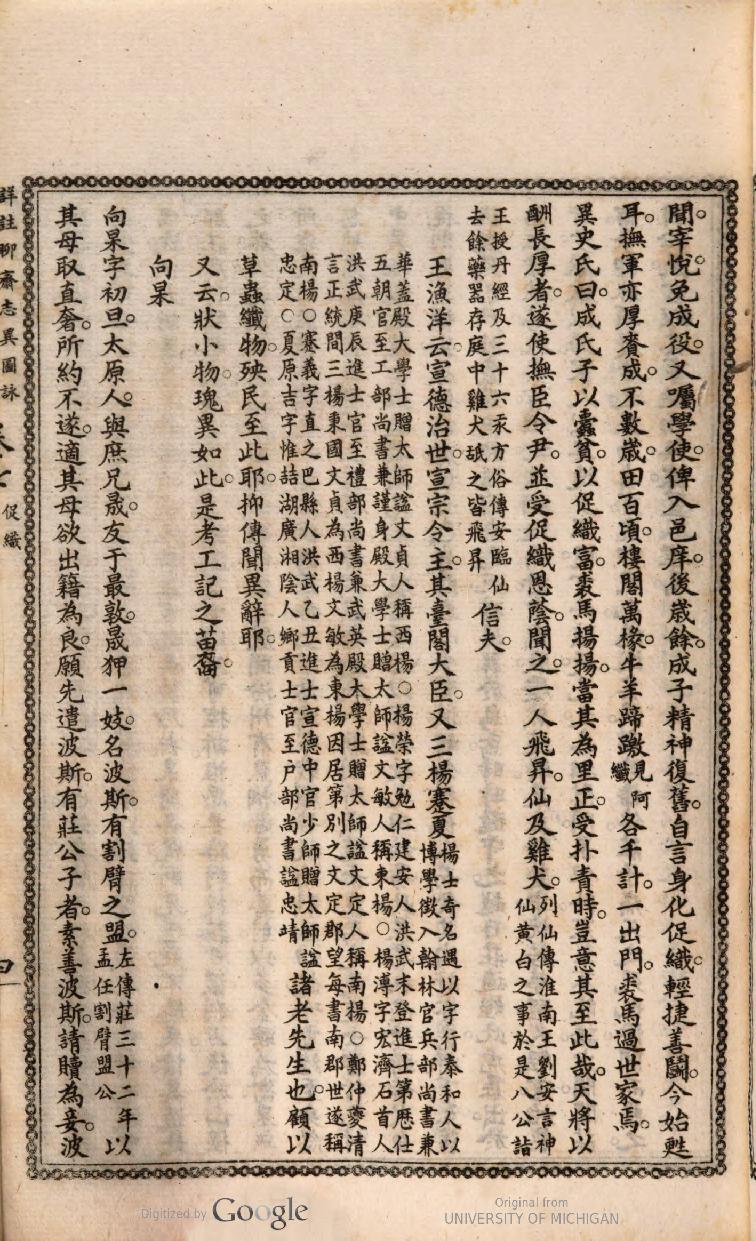 聞宰悅免成役又囑學使俾入邑庠後歲餘成子精神復舊自言身化促織輕捷善鬭今始甦
耳撫軍亦厚賚成不數歲田百頃樓閣萬椽牛羊蹄躈見阿纖各千計一出門裘馬過世家焉
異史氏曰成氏子以蠧貧以促織富裘馬揚揚當其為里正受扑責時豈意其至此哉天將以
酬長厚者遂使撫臣令尹並受促織恩蔭聞之一人飛昇仙及雞犬列仙傳淮南王劉安言神
仙黄白之事於是八公詣
王授丹經及三十六汞方俗傳安臨仙
去餘藥器存庭中雞犬舐之皆飛昇信夫
王漁洋云宣德治世宣宗令主其臺閣大臣又三楊蹇夏楊士奇名遇以字行泰和人以
博學徵入翰林官兵部尚書兼
華蓋殿大學士贈太師諡文貞人稱西楊○楊榮字勉仁建安人洪武末登進士第歷仕
五朝官至工部尚書兼謹身殿大學士贈太師諡文敏人稱東楊○楊溥字宏濟石首人
洪武庚辰進士官至禮部尚書兼武英殿大學士贈太師諡文定人稱南楊○鄭仲夔清
言正統間三楊秉國文貞為西楊文敏為東楊因居第別之文定郡望每書南郡世遂稱
南楊○蹇義字直之巴縣人洪武乙丑進士宣德中官少師贈太師諡
忠定○夏原吉字惟喆湖廣湘陰人鄉貢士官至户部尚書諡忠靖諸老先生也顧以
草蟲纖物殃民至此耶抑傳聞異辭耶
又云狀小物瑰異如此是考工記之苗裔
向杲
向杲字初旦太原人與庶兄晟友于最敦晟狎一妓名波斯有割臂之盟左傳莊三十二年以
孟任割臂盟公
其母取直奢所約不遂適其母欲出籍為良願先遣波斯有莊公子者素善波斯請贖為妾波
詳註聊齋志異圖詠
促織